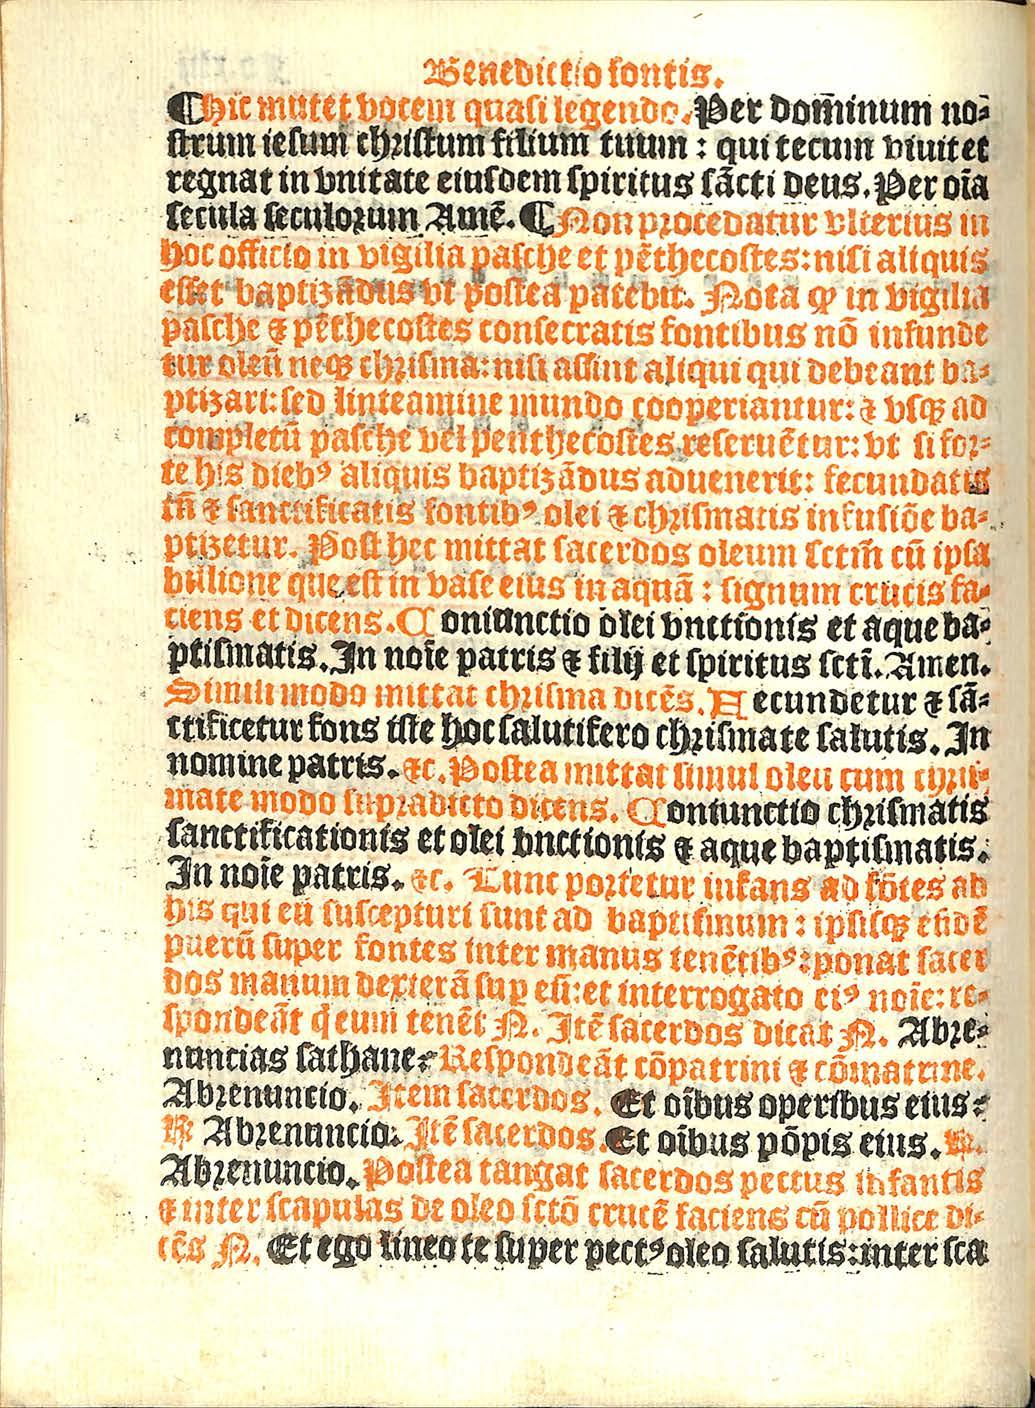 Benedictio fontis.
¶Hic mutet vocem quasi legendo. Per dom̄inum no⸗
strum iesum christum filium tuum : qui tecum viuit et
regnat in vnitate eiusdem spiritus sācti deus. Per oīa
secula seculorum Amē. ¶Non procedatur vlterius in
hoc officio in vigilia pasche et pēthecostes: nisi aliquis
esset baptizādus vt postea patebit. Nota ꝙ in vigilia
pasche ⁊ pēthecostes consecratis fontibus nō infunde
tur oleū neqꝫ chrisma: nisi assint aliqui qui debeant ba⸗
ptizari: sed linteamine mundo cooperiantur: ⁊ vsqꝫ ad
completū pasche vel penthecostes reseruētur: vt si for⸗
te his diebꝰ aliquis baptizādus aduenerit: fecundatis
tn̄ ⁊ sanctificatis fontibꝰ olei ⁊ chrismatis infusiōe ba⸗
ptizetur. Post hec mittat sacerdos oleum sctm̄ cū ipsa
bullione que est in vase eius in aquā : signum crucis fa⸗
ciens et dicens. Coniunctio olei vnctionis et aque ba⸗
ptismatis. In noīe patris ⁊ filij et spiritus sctī. Amen.
Simili modo mittat chrisma dicēs. Fecundetur ⁊ sā⸗
ctificetur fons iste hoc salutifero chrismate salutis. In
nomine patris. ⁊c. Postea mittat simul oleū cum chris⸗
mate modo supradicto dicens. Coniunctio chrismatis
sanctificationis et olei vnctionis ⁊ aque baptismatis.
In noīe patris. ⁊c. Tunc portetur infans ad fōtes ab
his qui eū suscepturi sunt ad baptismum : ipsisqꝫ eūdē
puerū super fontes inter manus tenētibꝰ: ponat sacer
dos manum dexterā suꝑ eū: et interrogato eiꝰ noīe: re⸗
spondeāt q̄ eum tenēt N. Itē sacerdos dicat N. Abre⸗
nuncias sathane: Respondeāt cōpatrini ⁊ cōmatrine.
Abrenuncio. Item sacerdos. Et oībus operibus eius:
℟ Abrenuncio. Itē sacerdos. Et oībus pōpis eius. ℟.
Abrenuncio. Postea tangat sacerdos pectus infantis
⁊ inter scapulas de oleo sctō crucē faciens cū pollice di⸗
cēs N. Et ego lineo te super pectꝰ oleo salutis: inter sca